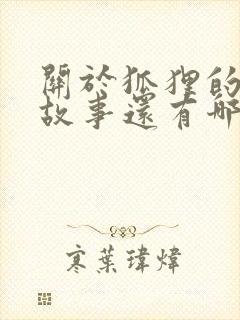 關於狐狸的
故事還有哪
寒葉瑋煒